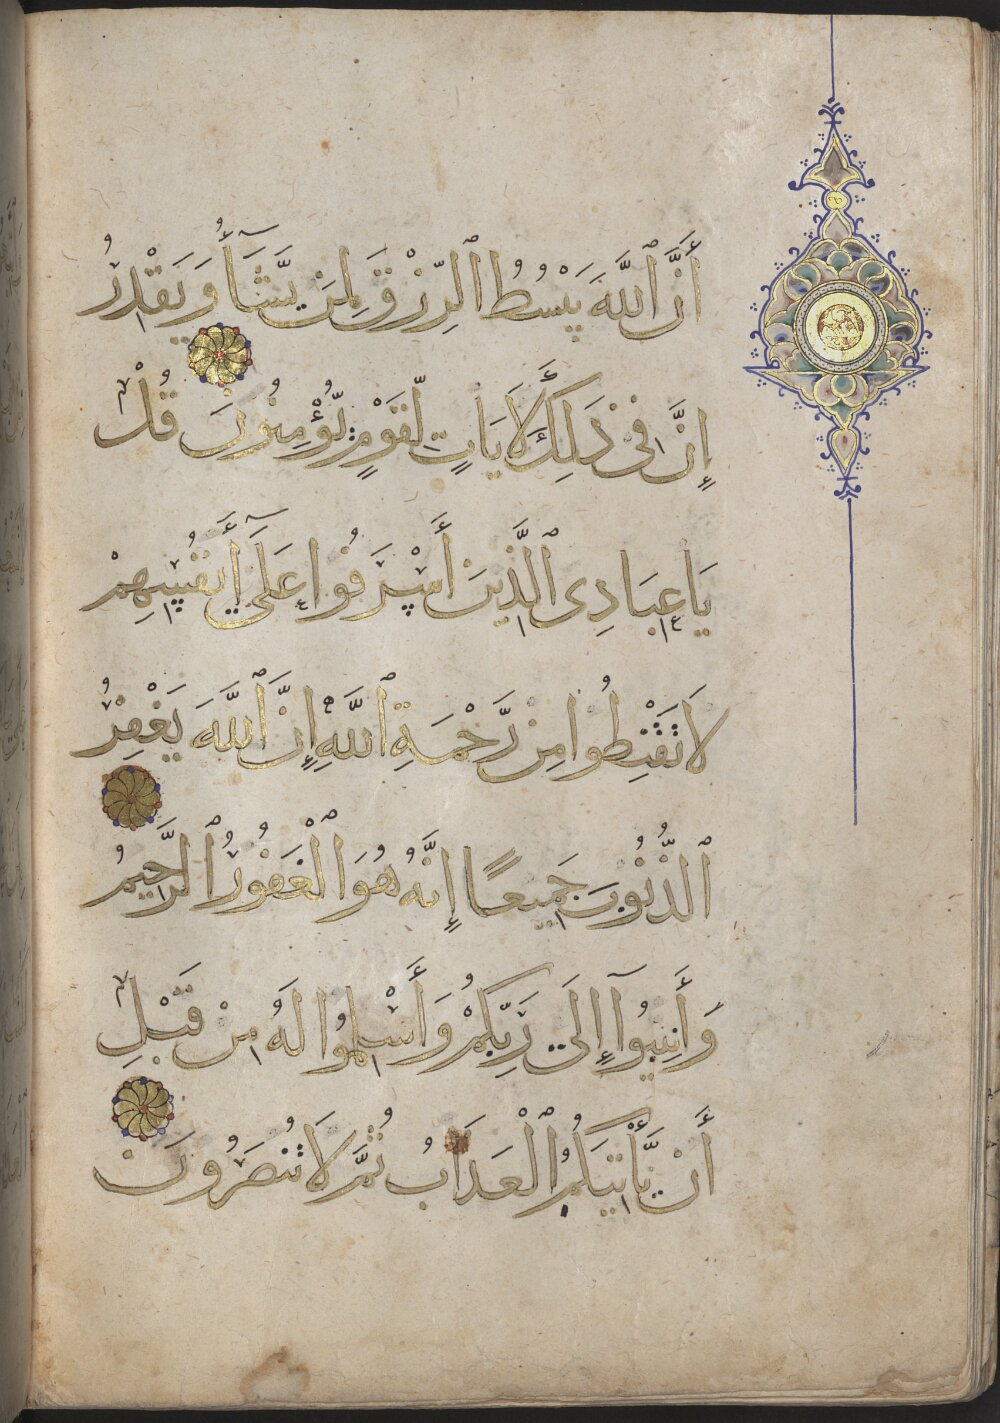 أَنَّ ٱللَّهَ يَبْسُطُ ٱلرِّزْقَ لِمَن يَّشَآءُ وَيَقْدِرُ
إِنَّ فِى ذَلِكَ لَأَيَاتٍ لِّقَوْمٍ يُّؤْمِنُونَ قُلْ
يَاعِبَادِىَ ٱلَّذِينَ أَسْرَفُوا عَلَىٓ أَنفُسِهِمْ
لَا تَقْنَطُوا مِن رَّحْمَةِ ٱللَّهِ إِنَّ ٱللَّهَ يَغْفِرُ
ٱلذُّنُوبَ جَمِيعًا إِنَّهُ هُوَ ٱلْغَفُورُ ٱلرَّحِيمُ
وَأَنِيبُوٓا إِلَى رَبِّكُمْ وَأَسْلِمُوا لَهُ مِن قَبْلِ
أَن يَّأْتِيَكُمُ ٱلْعَذَابُ ثُمَّ لَا تُنصَرُونَ